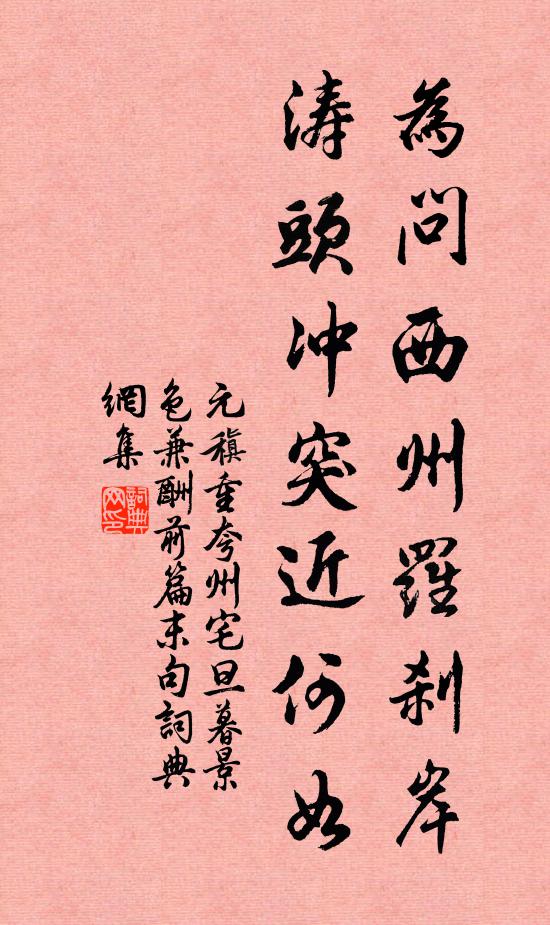 為問西州羅剎岸
濤頭沖突近何如
元稹重夸州宅旦暮景
色兼酬前篇末句詞典
網集
詞典
网印